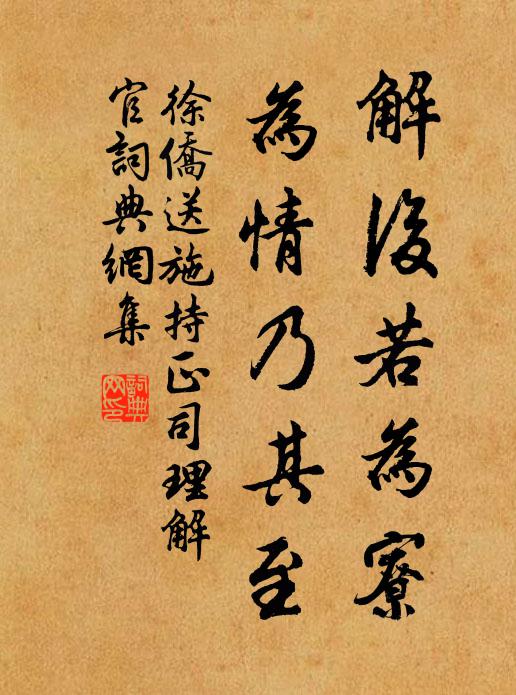 解後若為寮
為情乃其至
徐僑送施持正司理解
官詞典網集
詞典
网印